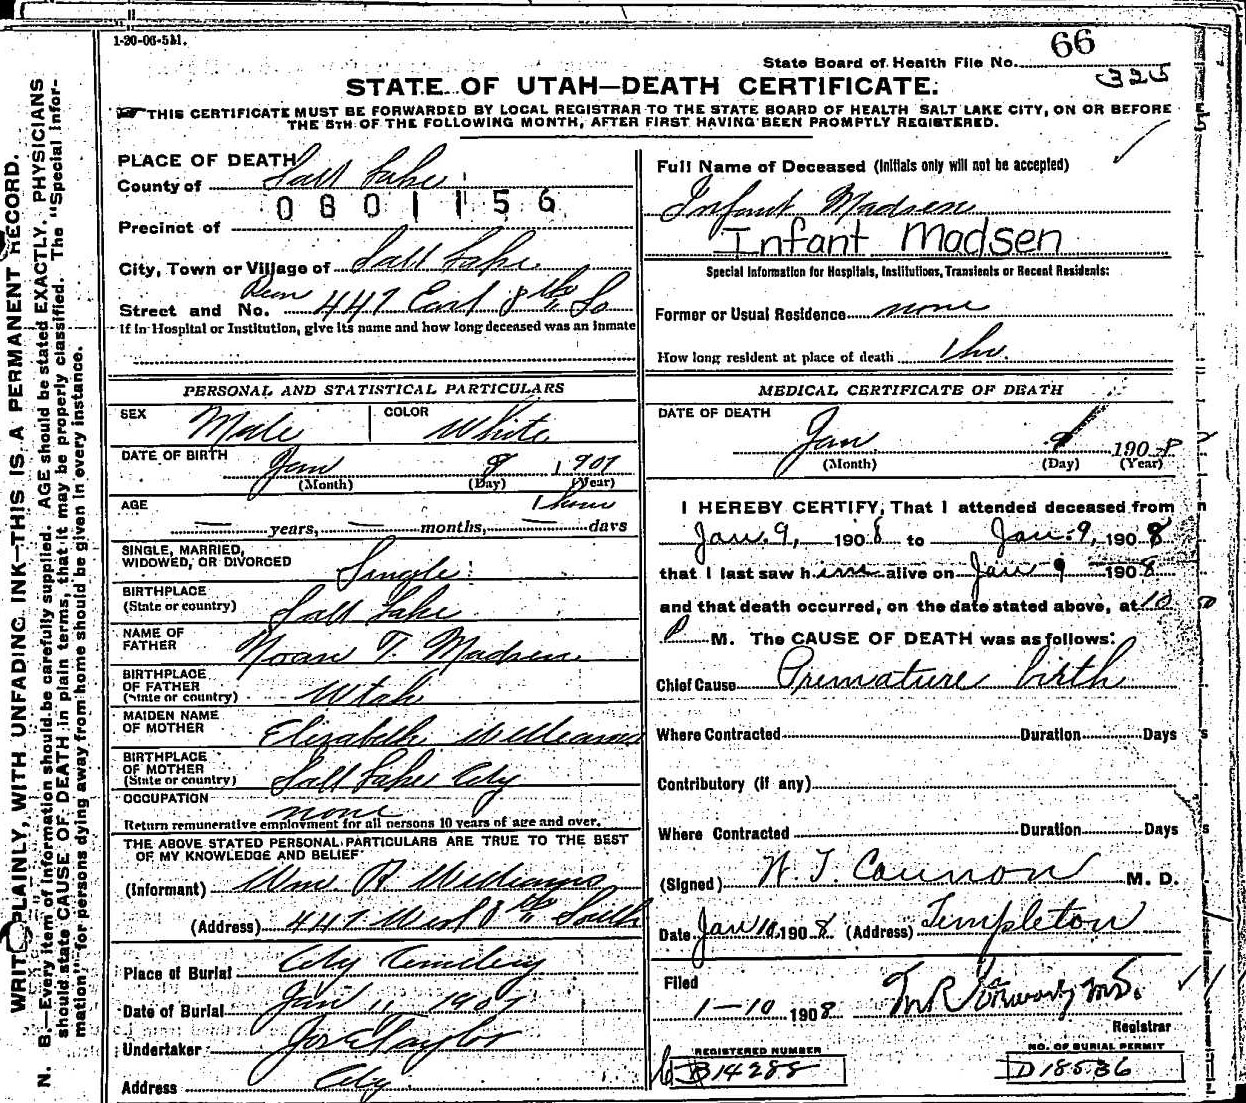 1-20-06-5M.
State Board of Health File No. 66
325
STATE OF UTAH—DEATH CERTIFICATE.
THIS CERTIFICATE MUST BE FORWARDED BY LOCAL REGISTRAR TO THE STATE BOARD OF HEALTH SALT LAKE CITY, ON OR BEFORE
THE 5TH OF THE FOLLOWING MONTH, AFTER FIRST HAVING BEEN PROMPTLY REGISTERED.
WRITE PLAINLY, WITH UNFADING INK—THIS IS A PERMANENT RECORD.
N. B.—Every item of information should be carefully supplied. AGE should be stated EXACTLY. PHYSICIANS
should state CAUSE OF DEATH in plain terms, that it may be properly classified. The "Special Infor-
mation" for persons dying away from home should be given in every instance.
PLACE OF DEATH
County of Salt Lake
0801156
Precinct of
City, Town or Village of Salt Lake
Street and No. 447 East 8th So
If in Hospital or Institution, give its name and how long deceased was an inmate
PERSONAL AND STATISTICAL PARTICULARS
SEX Male COLOR White
DATE OF BIRTH Jan 9 1907
(Month) (Day) (Year)
AGE 1 hour
— years, — months, — days
SINGLE, MARRIED,
WIDOWED, OR DIVORCED Single
BIRTHPLACE
(State or country) Salt Lake
NAME OF
FATHER T. Madsen
BIRTHPLACE
OF FATHER
(State or country) Utah
MAIDEN NAME
OF MOTHER Elizabeth Williams
BIRTHPLACE
OF MOTHER
(State or country) Salt Lake City
OCCUPATION none
Return remunerative employment for all persons 10 years of age and over.
THE ABOVE STATED PERSONAL PARTICULARS ARE TRUE TO THE BEST
OF MY KNOWLEDGE AND BELIEF
(Informant) Wm R Williams
(Address) 447 West 8th South
Place of Burial City Cemetery
Date of Burial Jan 11 1907
Undertaker Jos E Taylor
Address City
Full Name of Deceased (Initials only will not be accepted)
Infant Madsen
Infant Madsen
Special Information for Hospitals, Institutions, Transients or Recent Residents:
Former or Usual Residence none
How long resident at place of death 1 hr.
MEDICAL CERTIFICATE OF DEATH
DATE OF DEATH
Jan 9 1908
(Month) (Day) (Year)
I HEREBY CERTIFY, That I attended deceased from
Jan. 9, 1908 to Jan. 9, 1908
that I last saw him alive on Jan 9 1908
and that death occurred, on the date stated above, at 10
P M. The CAUSE OF DEATH was as follows:
Chief Cause Premature birth
Where Contracted Duration Days
Contributory (if any)
Where Contracted Duration Days
(Signed) W. T. Cannon M. D.
Date Jan 10 1908 (Address) Templeton
Filed
1-10 1908 M.D.
Registrar
REGISTERED NUMBER
B14288
NO. OF BURIAL PERMIT
D18536